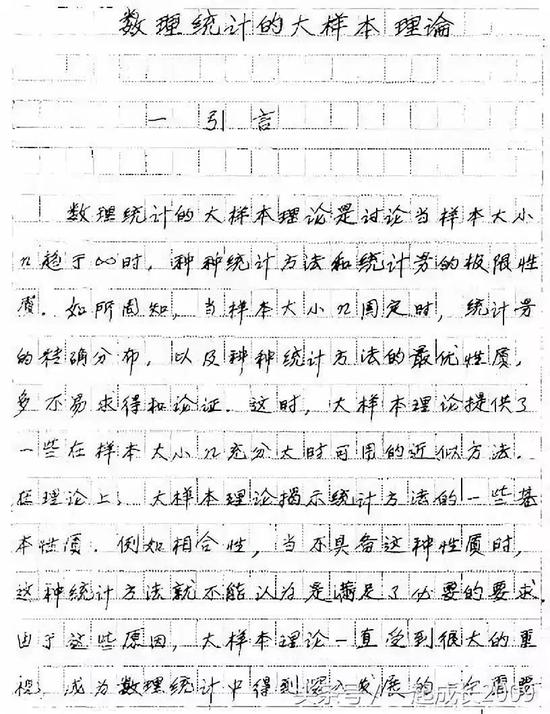 数理统计的大样本理论
一 引言
数理统计的大样本理论是讨论当样本大小
n趋于∞时，种种统计方法和统计量的极限性
质。如所周知，当样本大小n固定时，统计量
的精确分布，以及种种统计方法的最优性质，
多不易求得和论证。这时，大样本理论提供了
一些在样本大小n充分大时可用的近似方法。
在理论上，大样本理论揭示统计方法的一些基
本性质。例如相合性，当不具备这种性质时，
这种统计方法就不能认为是满足了必要的要求。
由于这些原因，大样本理论一直受到很大的重
视，成为数理统计中得到深入发展的一个重要
头条号／一起成长2009